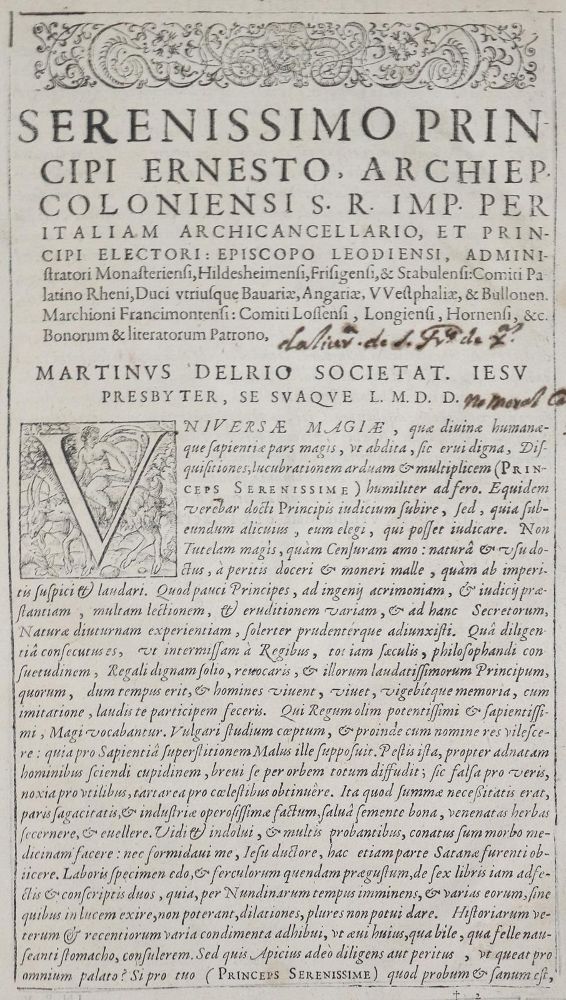 SERENISSIMO PRIN-
CIPI ERNESTO, ARCHIEP.
COLONIENSI S. R. IMP. PER
ITALIAM ARCHICANCELLARIO, ET PRIN-
CIPI ELECTORI: EPISCOPO LEODIENSI, ADMINI-
stratori Monasteriensi, Hildesheimensi, Frisigensi, & Stabulensi: Comiti Pa
latino Rheni, Duci vtriusque Bauariæ, Angariæ, VVestphaliæ, & Bullonen.
Marchioni Francimontensi: Comiti Lossensi, Longiensi, Hornensi, &c.
Bonorum & literatorum Patrono, de
MARTINVS DELRIO SOCIETAT. IESV
PRESBYTER, SE SVAQVE L. M. D. D.
VNIVERSÆ MAGIÆ, quæ diuinæ humanæ-
que sapientiæ pars magis, vt abdita, sic erui digna, Dis-
quisitiones, lucubrationem arduam & multiplicem (PRIN-
CEPS SERENISSIME) humiliter adfero. Equidem
verebar docti Principis iudicium subire, sed, quia sub-
eundum alicuius, eum elegi, qui posset iudicare. Non
Tutelam magis, quàm Censuram amo: naturâ & vsu do-
ctus, à peritis doceri & moneri malle, quàm ab imperi-
tis suspici & laudari. Quod pauci Principes, ad ingenij acrimoniam, & iudicij præ-
stantiam, multam lectionem, & eruditionem variam, & ad hanc Secretorum,
Naturæ diuturnam experientiam, solerter prudentérque adiunxisti. Quâ diligen-
tiâ consecutus es, vt intermissam à Regibus, tot iam sæculis, philosophandi con
suetudinem, Regali dignam solio, reuocaris, & illorum laudatissimorum Principum,
quorum, dum tempus erit, & homines viuent, viuet, vigebitque memoria, cum
imitatione, laudis te participem feceris. Qui Regum olim potentissimi & sapientissi-
mi, Magi vocabantur. Vulgari studium cœptum, & proinde cum nomine res vilesce-
re: quia pro Sapientiâ superstitionem Malus ille supposuit. Pestis ista, propter adnatam
hominibus sciendi cupidinem, breui se per orbem totum diffudit; sic falsa pro veris,
noxia pro vtilibus, tartarea pro cœlestibus obtinuêre. Ita quod summæ necessitatis erat,
paris sagacitatis, & industriæ operosissimæ factum, saluâ semente bona, venenatas herbas
secernere, & euellere. Vidi & indolui, & multis probantibus, conatus sum morbo me-
dicinam facere: nec formidaui me, Iesu ductore, hac etiam parte Satanæ furenti ob-
iicere. Laboris specimen edo, & ferculorum quendam prægustum, de sex libris iam adfe-
ctis & conscriptis duos, quia, per Nundinarum tempus imminens, & varias eorum, sine
quibus in lucem exire, non poterant, dilationes, plures non potui dare. Historiarum ve-
terum & recentiorum varia condimenta adhibui, vt æui huius, qua bile, qua felle nau-
seanti stomacho, consulerem. Sed quis Apicius adeò diligens aut peritus, vt queat pro
omnium palato? Si pro tuo (PRINCEPS SERENISSIME) quod probum & sanum est,
† 2